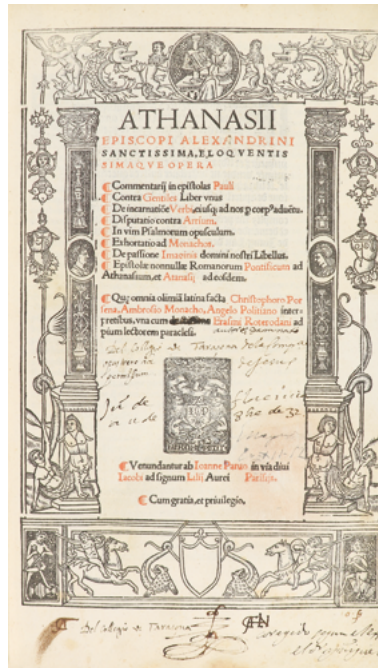 ATHANASII
EPISCOPI ALEXANDRINI
SANCTISSIMA, ELOQVENTIS
SIMAQVE OPERA
Commentarij in epistolas Pauli
Contra Gentiles Liber vnus
De incarnatiōe Verbi, eiusq; ad nos p corpꝰ aduētu.
Disputatio contra Arrium.
In vim Psalmorum opusculum.
Exhortatio ad Monachos.
De passione Imaginis domini nostri Libellus.
Epistolæ nonnullæ Romanorum Pontificum ad
Athanasium, et Atanasij ad eosdem.
Quę omnia olim iā latina facta Christophoro Por
sena, Ambrosio Monacho, Angelo Politiano inter-
pretibus, vna cum Erasmi Roterodami ad
pium lectorem paraclesi.
Del Collegio de Taraçona de la
IEHAN PETIT
Venundantur ab Ioanne Paruo in via diui
Iacobi ad signum Lilij Aurei Parisijs.
Cum gratia, et priuilegio.
Del Collegio de Taraçona